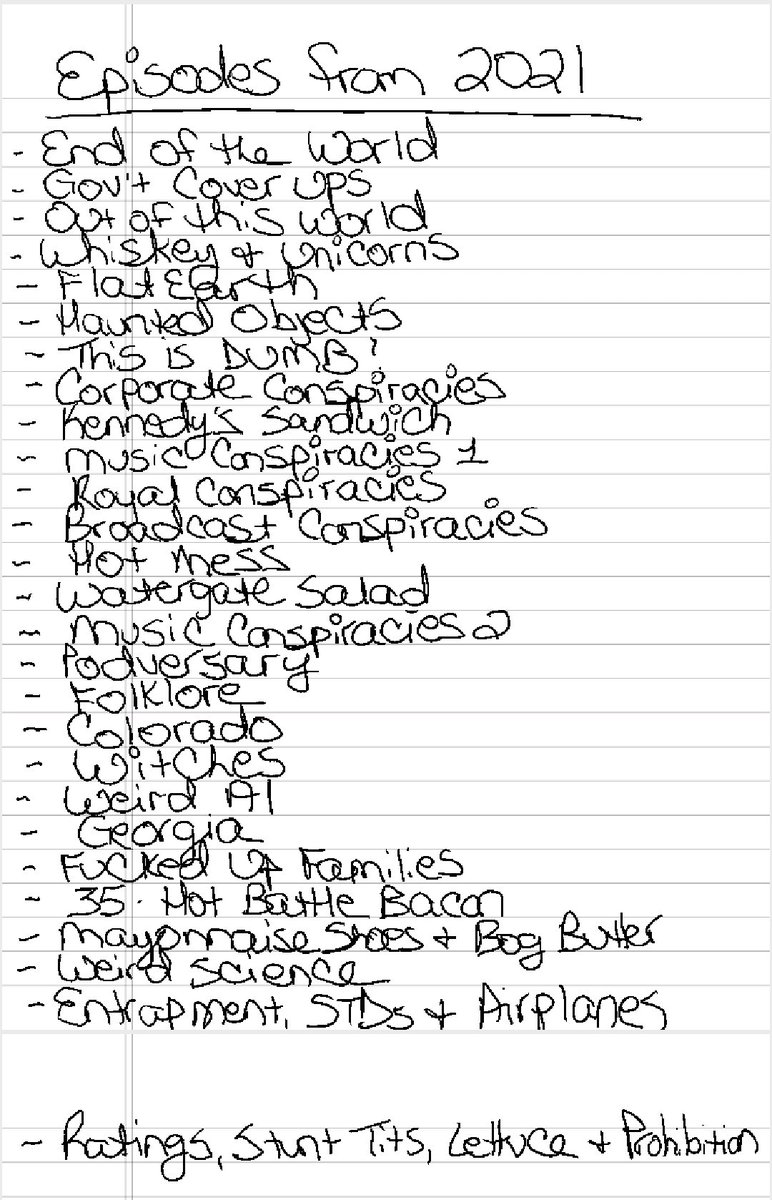 Episodes from 2021
- End of the World
- Gov't Cover ups
- Out of this world
- Whiskey + Unicorns
- Flat Earth
- Haunted Objects
- This is DUMB!
- Corporate Conspiracies
- Kennedy's Sandwich
- Music Conspiracies 1
- Royal Conspiracies
- Broadcast Conspiracies
- Hot Mess
- Watergate Salad
- Music Conspiracies 2
- Podversary
- Folklore
- Colorado
- Witches
- Weird Al
- Georgia
- Fucked Up Families
- 35. Hot Battle Bacon
- Mayonnaise Shoes + Bog Butter
- Weird Science
- Entrapment, STDs + Airplanes
- Ratings, Stunt Tits, Lettuce + Prohibition